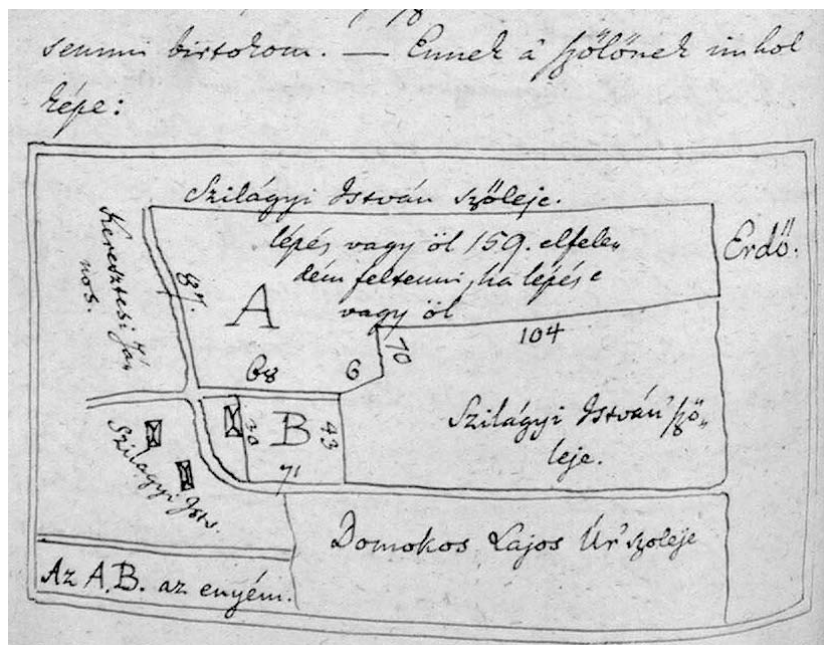 semmi birtokom. — Ennek a' szőlőnek imhol
képe:
Szilágyi István szőleje.
lépés vagy öl 159. elfele„
dém feltenni, ha lépés e
vagy öl
Keresztesi Já„
nos.
87.
A
Erdő.
104
70
68
6
B
30
43
71
Szilágyi István' sző„
leje.
Szilágyi Istv.
Domokos Lajos Úr' szőleje
Az A, B. az enyém.